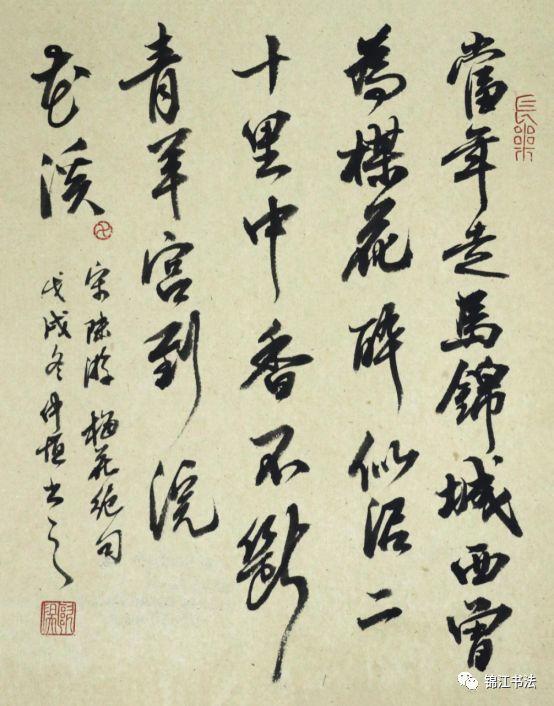 長樂
當年走馬錦城西曾
為楳花醉似泥二
十里中香不斷
青羊宮到浣
花溪
宋陸游梅花絕句
戊戌冬仲恒書之
锦江书法